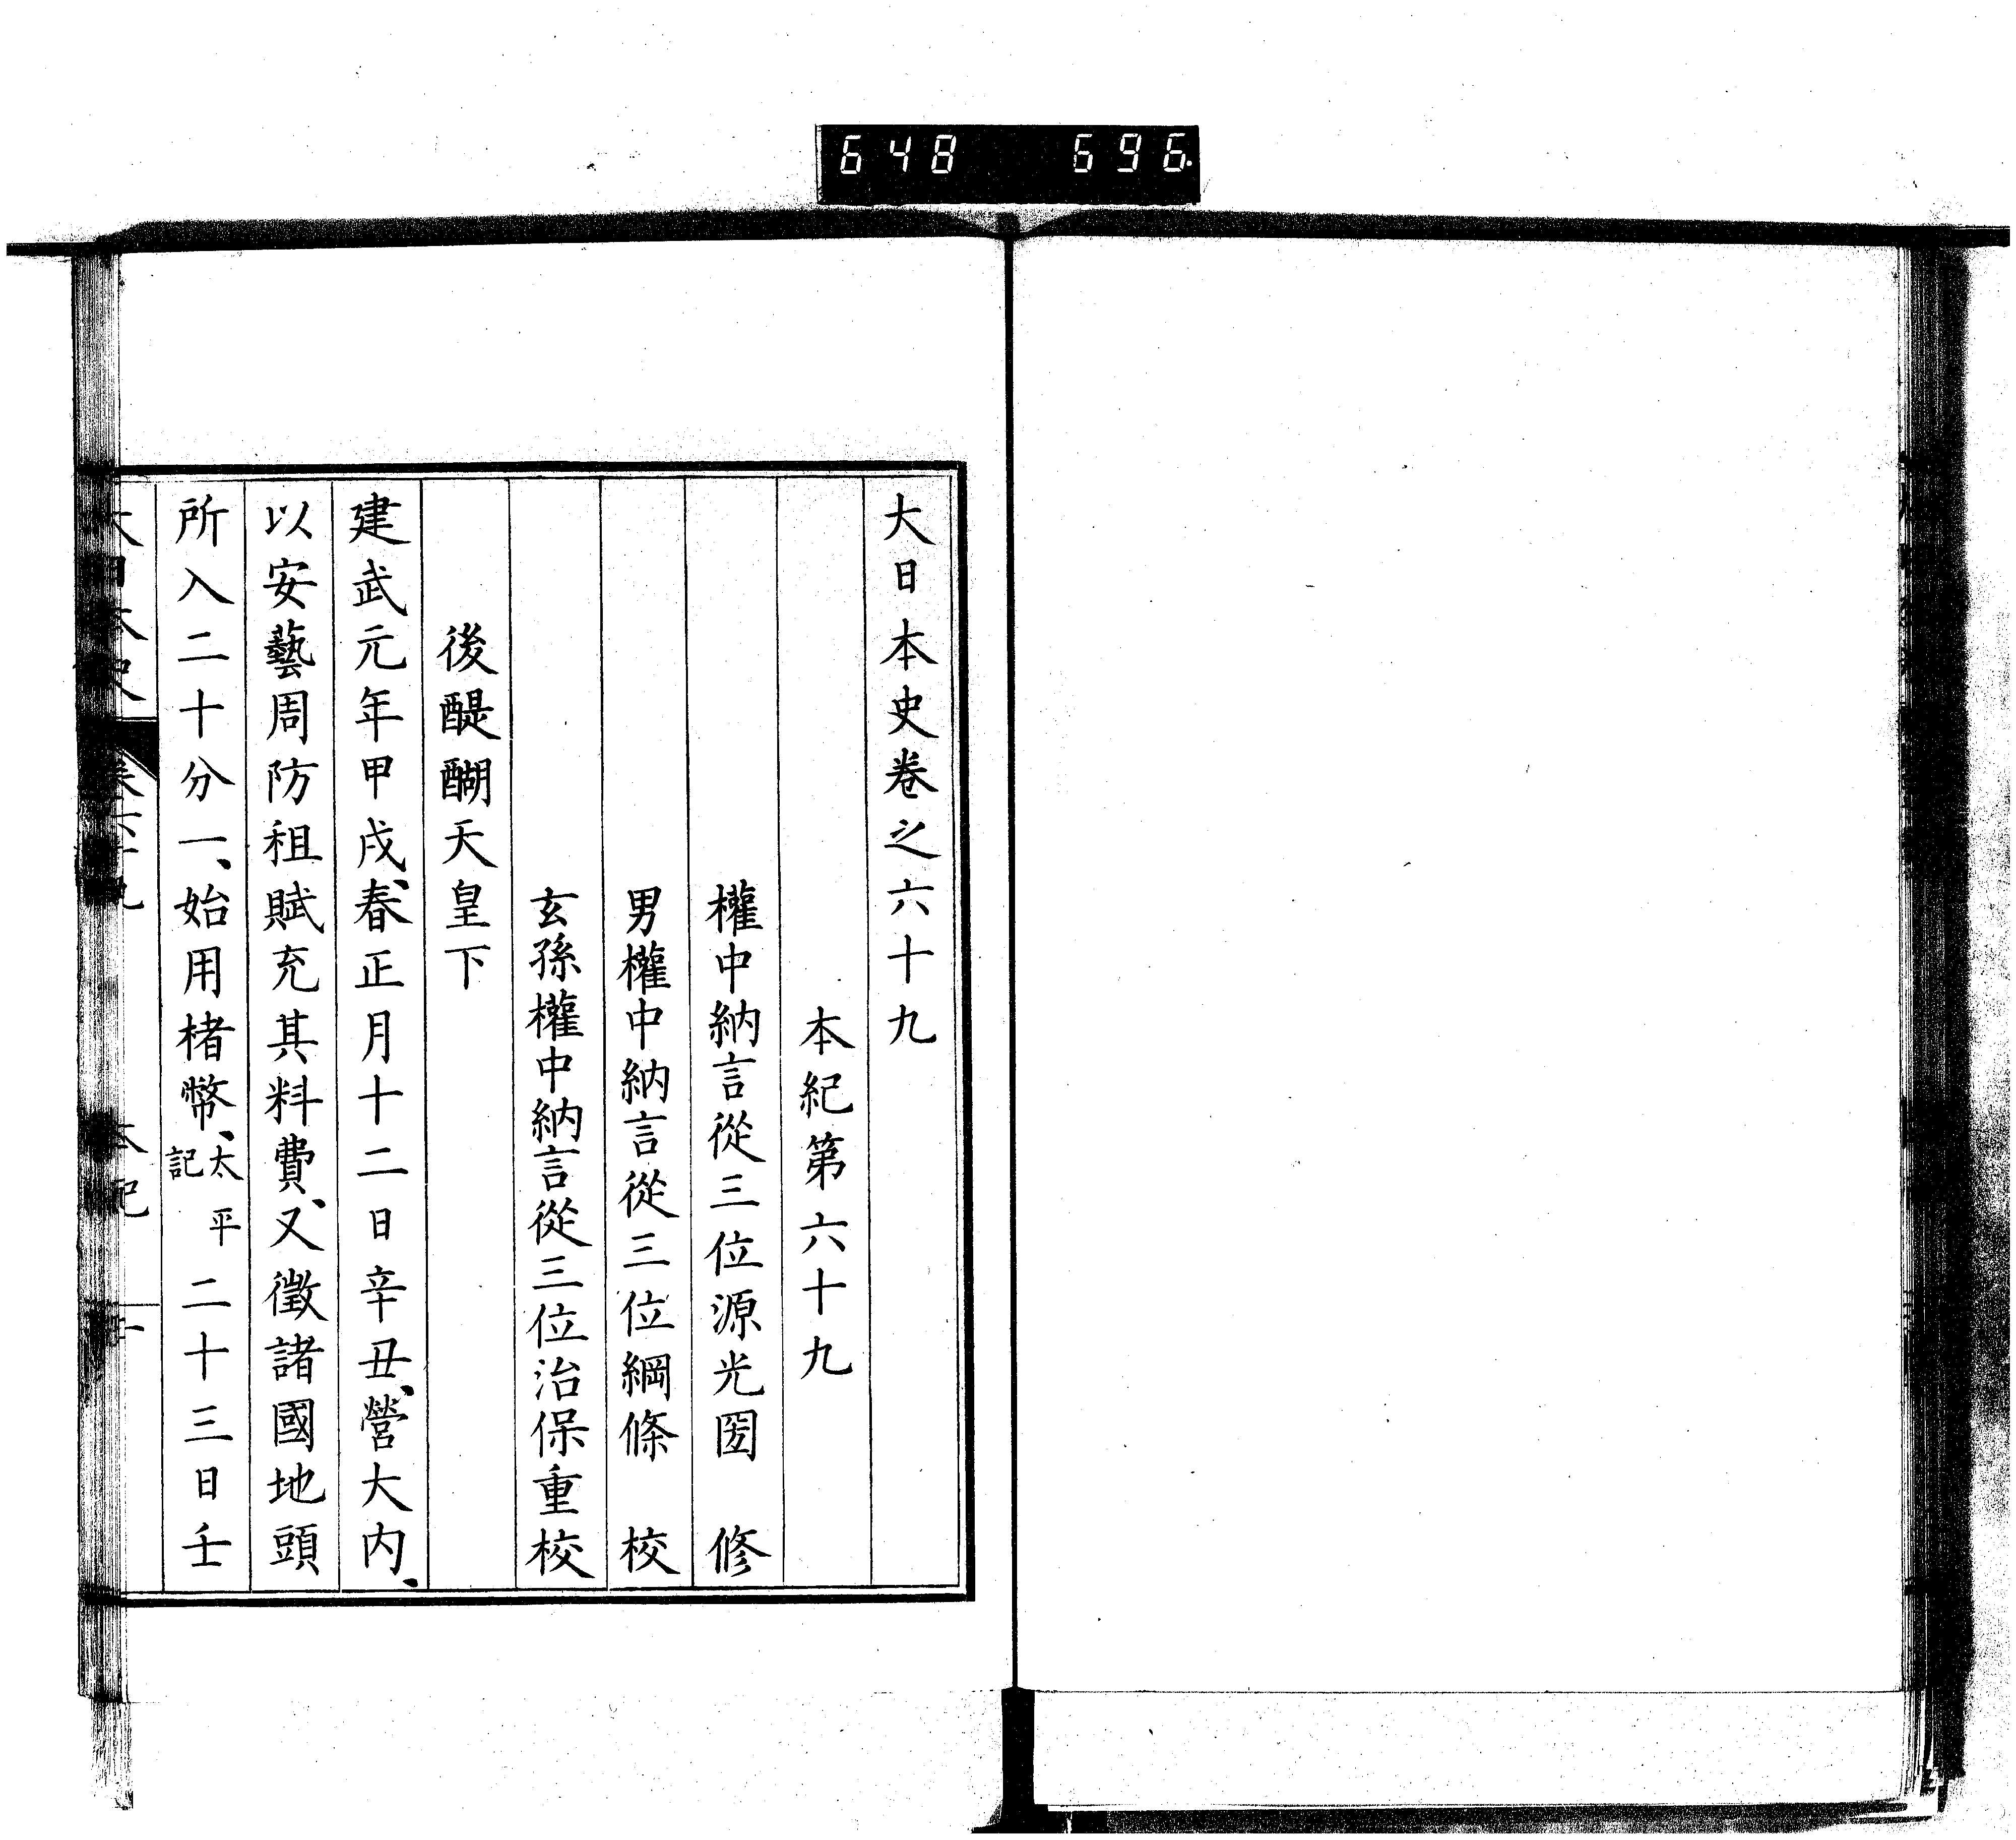 648 696
大日本史卷之六十九
本紀第六十九
權中納言從三位源光圀 修
男權中納言從三位綱條 校
玄孫權中納言從三位治保重校
後醍醐天皇下
建武元年甲戌、春正月十二日辛丑、營大内、
以安藝周防租賦充其料費、又徵諸國地頭
所入二十分一、始用楮幣、太平記 二十三日壬